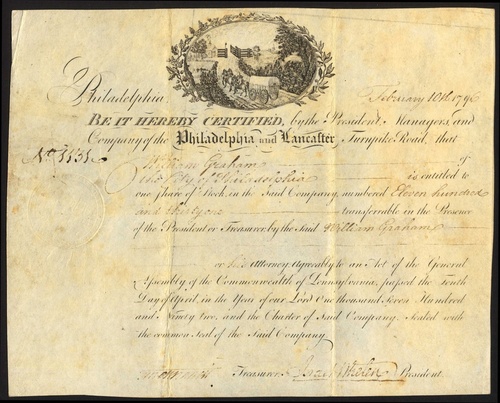 Philadelphia February 10th 1796
BE IT HEREBY CERTIFIED, by the President, Managers, and
Company of the Philadelphia and Lancaster Turnpike Road, that
No. 1131 William Graham of
the City of Philadelphia is entitled to
one Share of Stock in the Said Company, numbered Eleven hundred
and thirty one transferrable in the Presence
of the President or Treasurer by the Said William Graham
or his Attorney Agreeably to an Act of the General
Assembly of the Commonwealth of Pennsylvania, passed the Tenth
Day of April, in the Year of our Lord One thousand Seven Hundred
and Ninety two, and the Charter of Said Company. Sealed with
the common Seal of the Said Company.
Treasurer. Israel Whelen President.